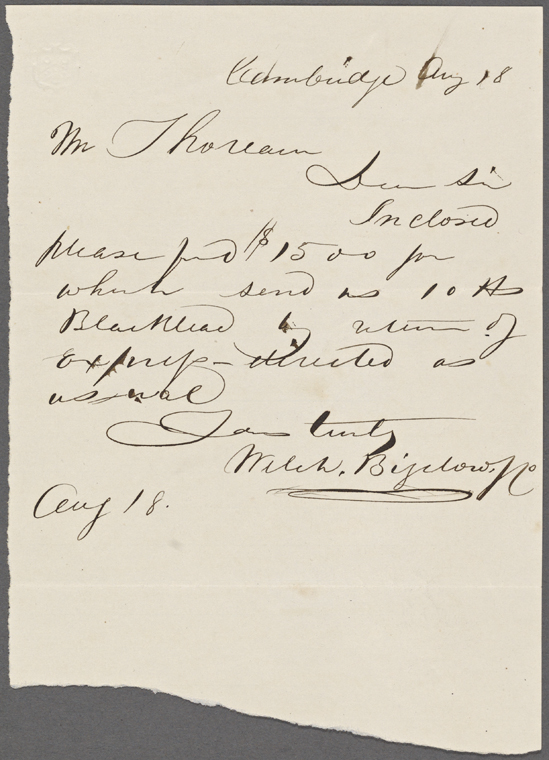 Cambridge Aug 18
Mr Thoreau
Dear Sir
Inclosed
please find $15 00 for
which send us 10 lbs
Blacklead by return of
express - directed as
usual
Yours truly
Welch, Bigelow, & Co
Aug 18.